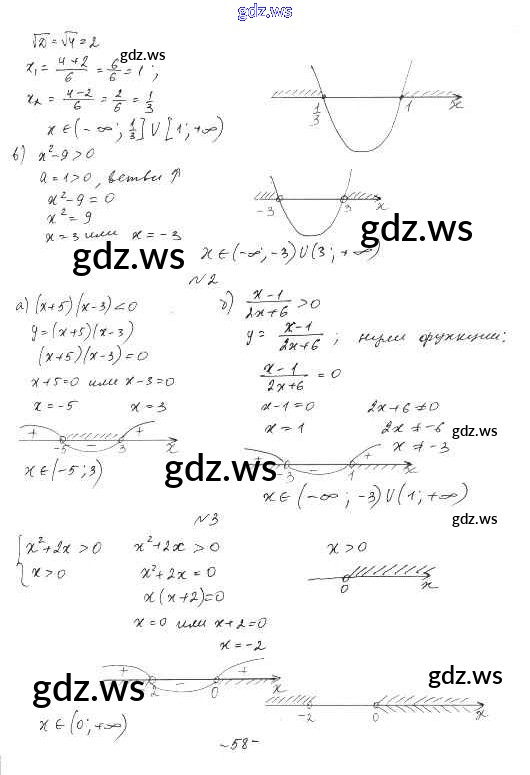 gdz.ws
√D = √4 = 2
x₁ = (4+2)/6 = 6/6 = 1;
x₂ = (4-2)/6 = 2/6 = 1/3
1/3 1 x
x ∈ (-∞; 1/3] ∪ [1; +∞)
в) x²-9>0
a=1>0, ветви ↑
x²-9=0
x²=9
x=3 или x=-3
-3 3 x
x ∈ (-∞; -3) ∪ (3; +∞)
gdz.ws
gdz.ws
gdz.ws
№2
а) (x+5)(x-3)<0
y=(x+5)(x-3)
(x+5)(x-3)=0
x+5=0 или x-3=0
x=-5 x=3
+ -5 - 3 + x
x ∈ (-5; 3)
б) (x-1)/(2x+6) > 0
y = (x-1)/(2x+6); нули функции:
(x-1)/(2x+6) = 0
x-1=0 2x+6≠0
x=1 2x≠-6
x≠-3
+ -3 - 1 + x
x ∈ (-∞; -3) ∪ (1; +∞)
gdz.ws
gdz.ws
gdz.ws
№3
{x²+2x>0
x>0
x²+2x>0
x²+2x=0
x(x+2)=0
x=0 или x+2=0
x=-2
x>0
0 x
+ -2 - 0 + x
-2 0 x
x ∈ (0; +∞)
gdz.ws
gdz.ws
-58-